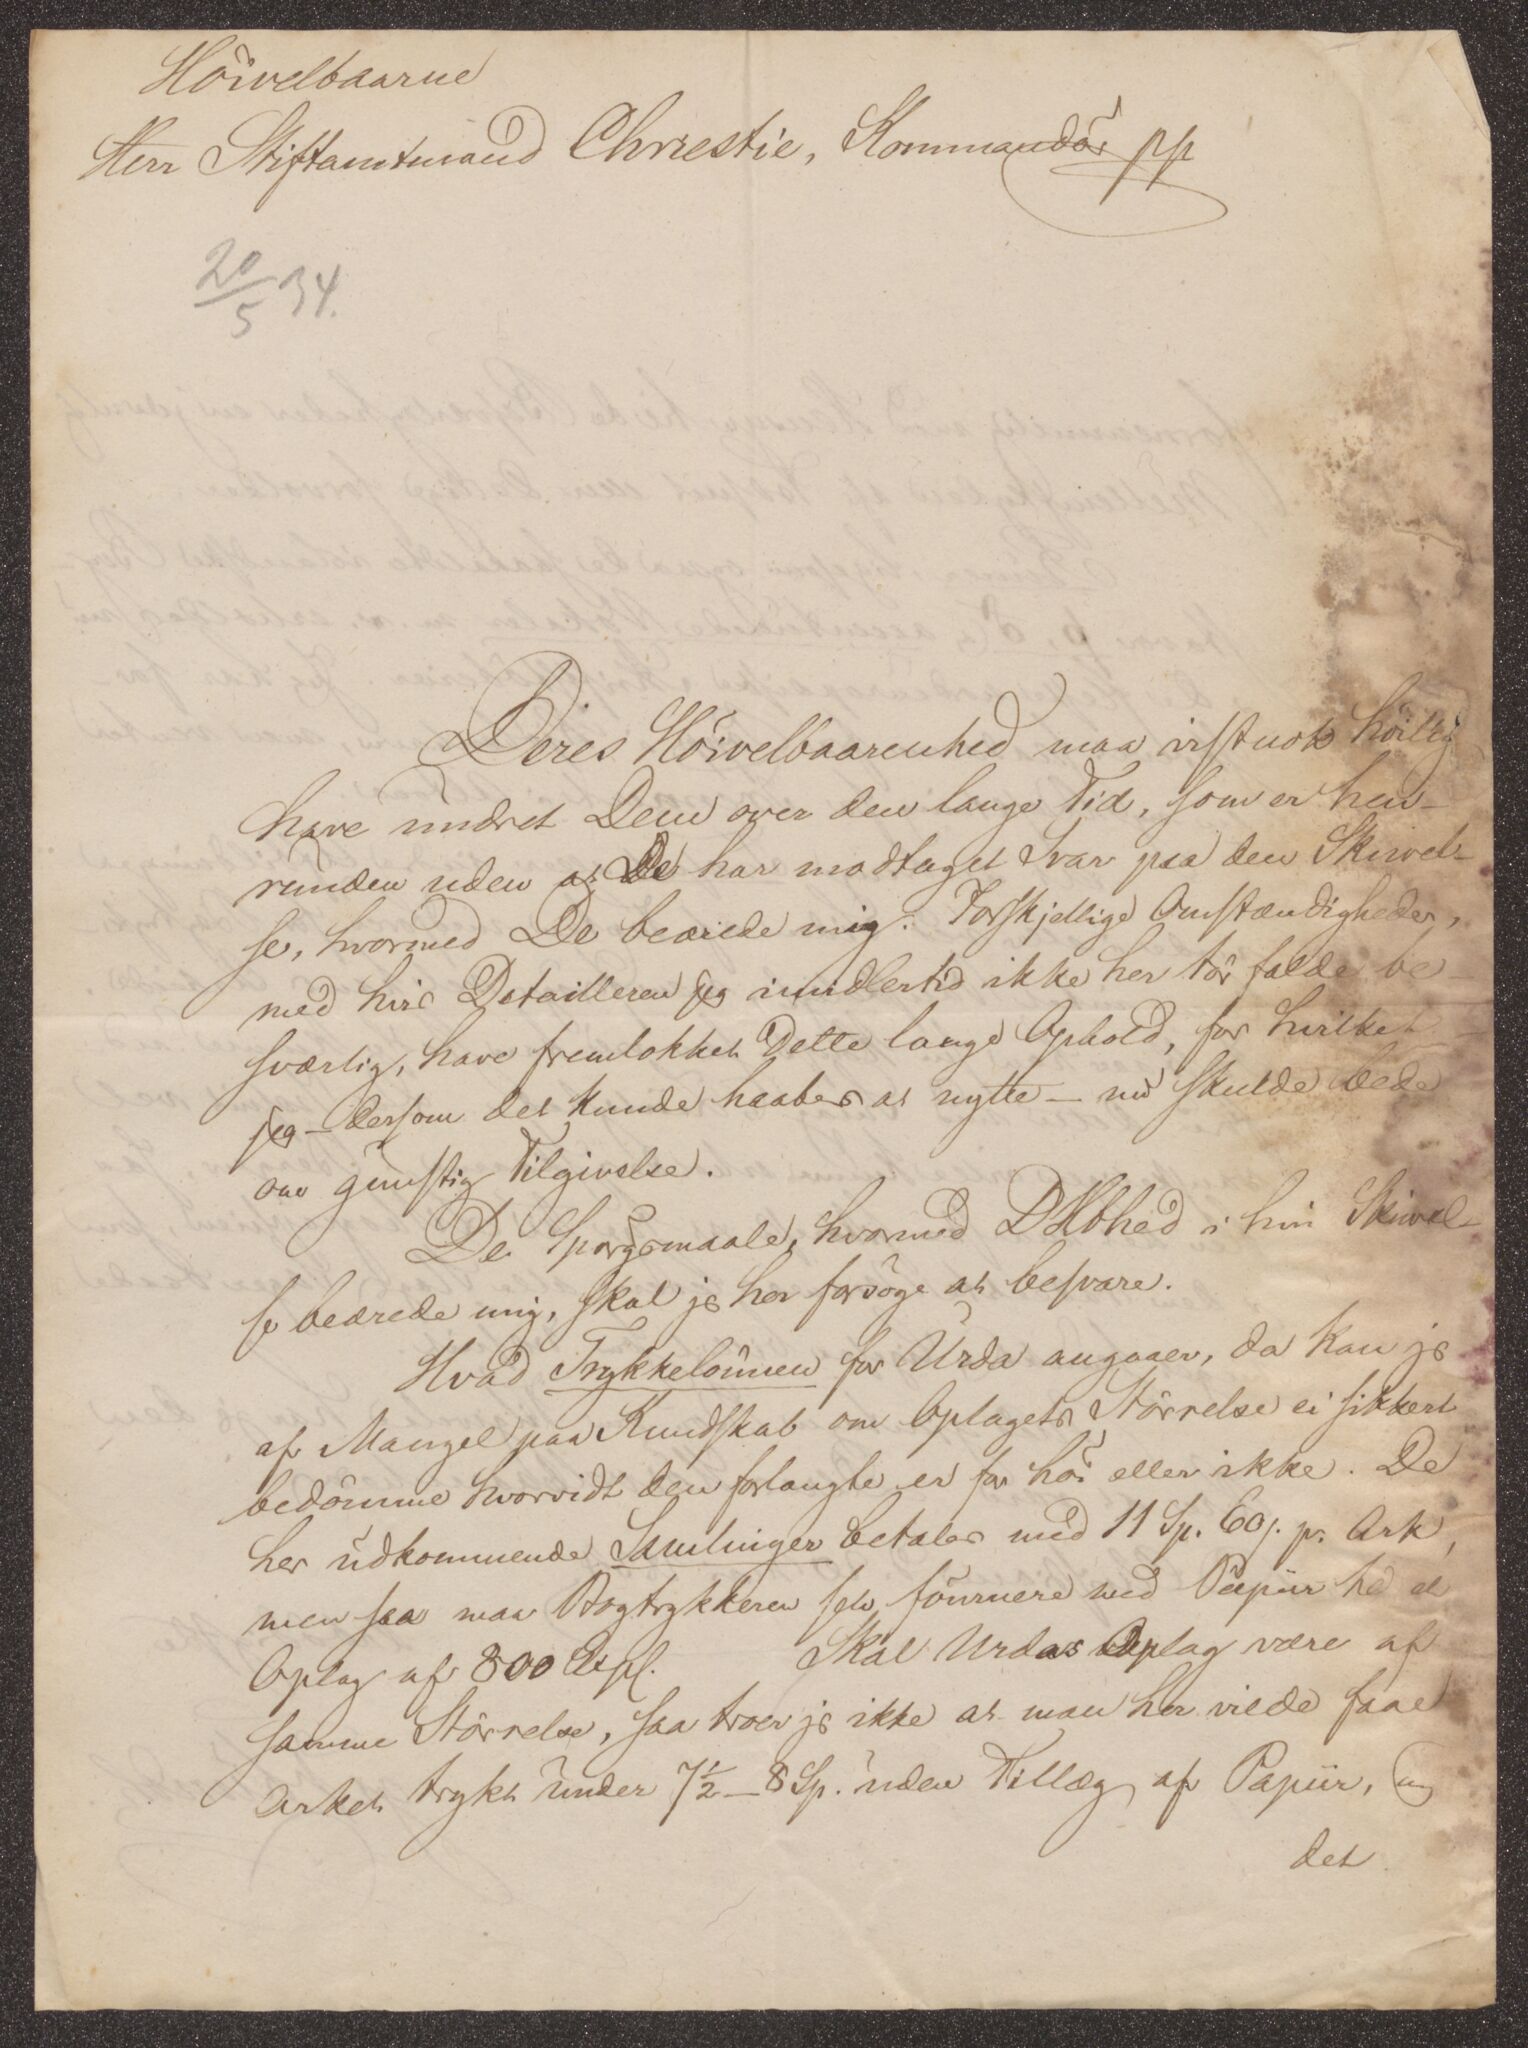 Höivelbaarne
Herr Stiftamtmand Christie, Kommandör pp
20/5 34.
Deres Höivelbaarenhed maa vistnok höilig
have undret Dem over den lange Tid, som er hen-
runden uden at De har modtaget Svar paa den Skrivel-
se, hvormed De beærede mig. Forskjellige Omstændigheder,
med hvis Detailleren jeg imidlertid ikke her tör falde be-
sværlig, have fremlokket dette lange Ophold, for hvilket
jeg – dersom det kunde haabes at nytte – nu skulde bede
om gunstig Tilgivelse.
De Spörgsmaale, hvormed DHbhed i hin Skrivel-
se beærede mig, skal jeg her forsöge at besvare.
Hvad Trykkelönnen for Urda angaaer, da kan jeg
af Mangel paa Kundskab om Oplagets Störrelse ei sikkert
bedömme hvorvidt den forlangte er for höi eller ikke. De
her udkommende Samlinger betales med 11 Sp. 60 s. pr. Ark,
men saa maa Bogtrykkeren selv fournere med Papiir til et
Oplag af 800 Expl. Skal Urdas Oplag være af
samme Störrelse, saa troer jeg ikke at man her vilde faae
Arket trykt under 7½ – 8 Sp. uden Tillæg af Papiir, og
det